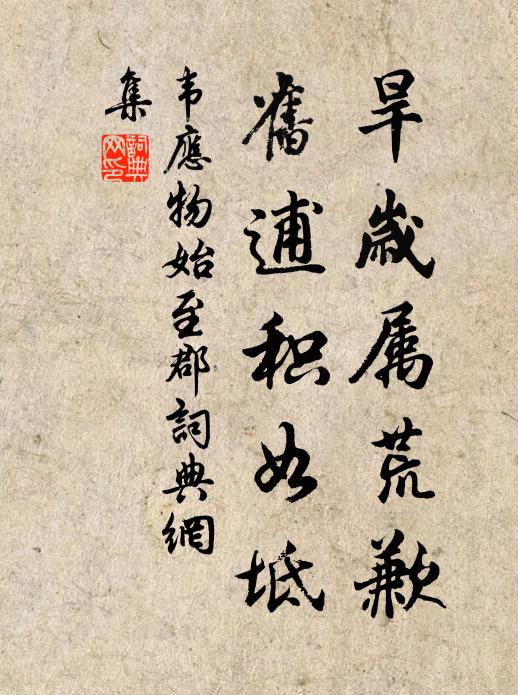 旱歲属荒歉
舊逋积如坻
韦應物始至郡詞典網
集
詞典网印